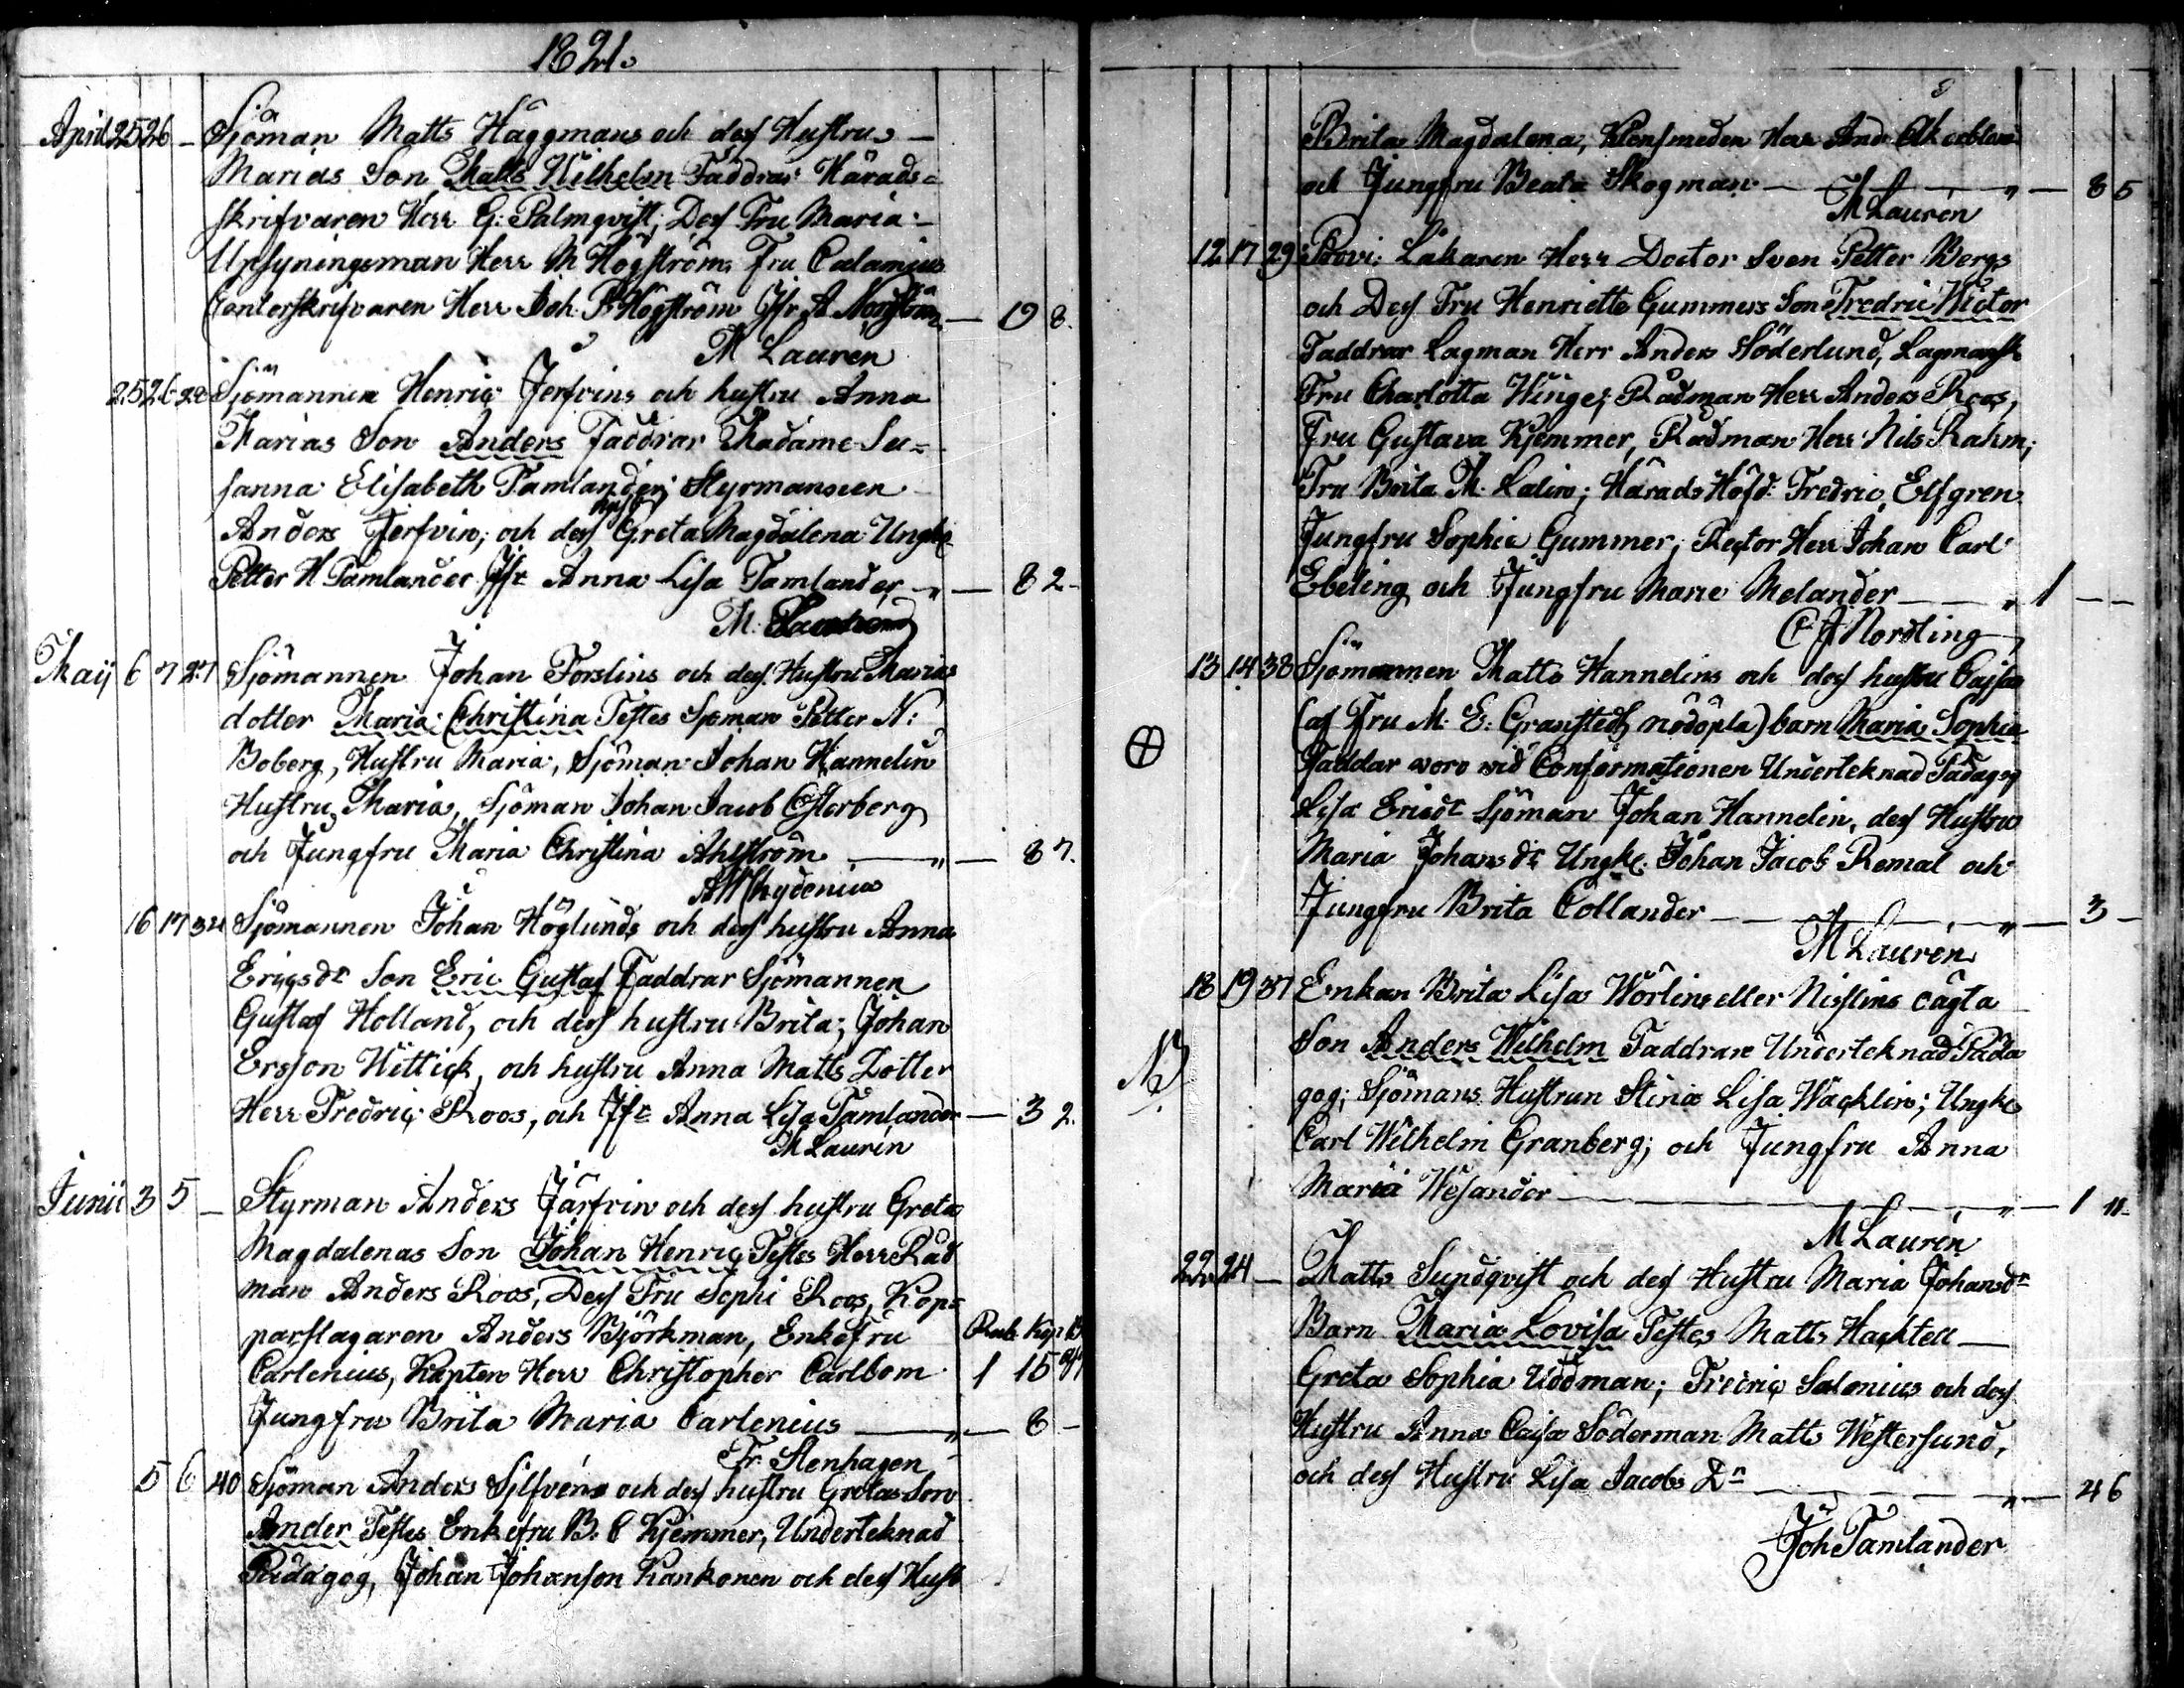 1821.
April 25 26 - Sjöman Matts Häggmans och dess Hustrus -
Marias Son Matts Wilhelm Faddrar Härads=
skrifvaren Herr G: Palmqvist; Dess Fru Maria -
Upsyningsman Herr M Högström, Fru Calamjus
Contorskrifvaren Herr Joh. P. Högström Jfr A Norström — 19 8.
M Laurén
25 26 28 Sjömannen Henric Jerfvins och hustru Anna
Marias Son Anders Faddrar Madame Su=
sanna Elisabeth Tamlander; Styrmannen
Hust
Anders Jerfvin; och dess Greta Magdalena Ungk:
Petter H Tamlander Jfr Anna Lisa Tamlander — " — 8 2 -
M. Laurén
Maij 6 7 27 Sjömannen Johan Forslins och dess Hustru Marias
dotter Maria Christina Testes Sjöman Petter N:
Boberg, Hustru Maria, Sjöman Johan Hannelin
Hustru Maria, Sjöman Johan Jacob Österberg
och Jungfru Maria Christina Ahlström — " — 8 7.
AW Chydenius
16 17 34 Sjömannen Johan Höglunds och dess hustru Anna
Ericsdr Son Eric Gustaf Faddrar Sjömannen
Gustaf Holland, och dess hustru Brita; Johan
Ersson Wittick, och hustru Anna Matts Dotter
Herr Fredric Roos, och Jfr Anna Lisa Tamlander — 3 2.
M Laurén
Junii 3 5 - Styrman Anders Järfvin och dess hustru Greta
Magdalenas Son Johan Henric Testes Herr Råd
man Anders Roos, Dess Fru Sophi Roos, Kop=
parslagaren Anders Björkman, Enkefru Rub. Kop
Carlenius, Kapten Herr Christopher Carlbom 1 15
Jungfru Brita Maria Carlenius — " — 6 -
Fr. Stenhagen
5 6 40 Sjöman Anders Silfvéns och dess hustru Gretas Son
Ander Testes Enkefru B. C Kjemmer, Underteknad
Pädagog, Johan Johanson Kankonen och dess Hust
Brita Magdalena, Klensmeden Herr And: Åkerblom
och Jungfru Beata Skogman — " — 8 5
M Laurén
12 17 29 Provi: Läkaren Herr Doctor Sven Petter Bergs
och Dess Fru Henriette Gummers Son Fredric Victor
Faddrar Lagman Herr Anders Söderlund, Lagmansk
Fru Charlotta Winge; Rådman Herr Anders Roos,
Fru Gustava Kjemmer, Rådman Herr Nils Rahm;
Fru Brita M. Kalin; Härads Höfd: Fredric Elfgren
Jungfru Sophie Gummer; Rector Herr Johan Carl
Ebeling och Jungfru Marie Melander — " 1 - -
C J Nordling
13 14 38 Sjömannen Matts Hannelins och dess hustru Cajsas
(af Fru M. E. Granstedt nöddöpta) barn Maria Sophia
Faddar woro wid Conformationen Underteknad Pädagog
Lisa Ericdr Sjöman Johan Hannelin, dess Hustru
Maria Johansdr Ungk: Johan Jacob Remal och
Jungfru Brita Collander — " — 3 -
M Laurén
18 19 37 Enkan Brita Lisa Wörlins eller Nislins oägta
NB
Son Anders Wilhelm Faddrare Underteknad Päda
gog; Sjömans Hustrun Stina Lisa Wäcklin; Ungk:
Carl Wilhelm Granberg; och Jungfru Anna
Maria Wesander — " — 1 11 -
M Laurén
22 24 - Matts Sundqvist och dess Hustru Maria Johansdr
Barn Maria Lovisa Testes Matts Hacktell —
Greta Sophia Uddman; Fredric Salonius och dess
Hustru Anna Caisa Söderman Matts Westersund,
och dess Hustru Lisa Jacobs Dr — " — 26
Joh Tamlander